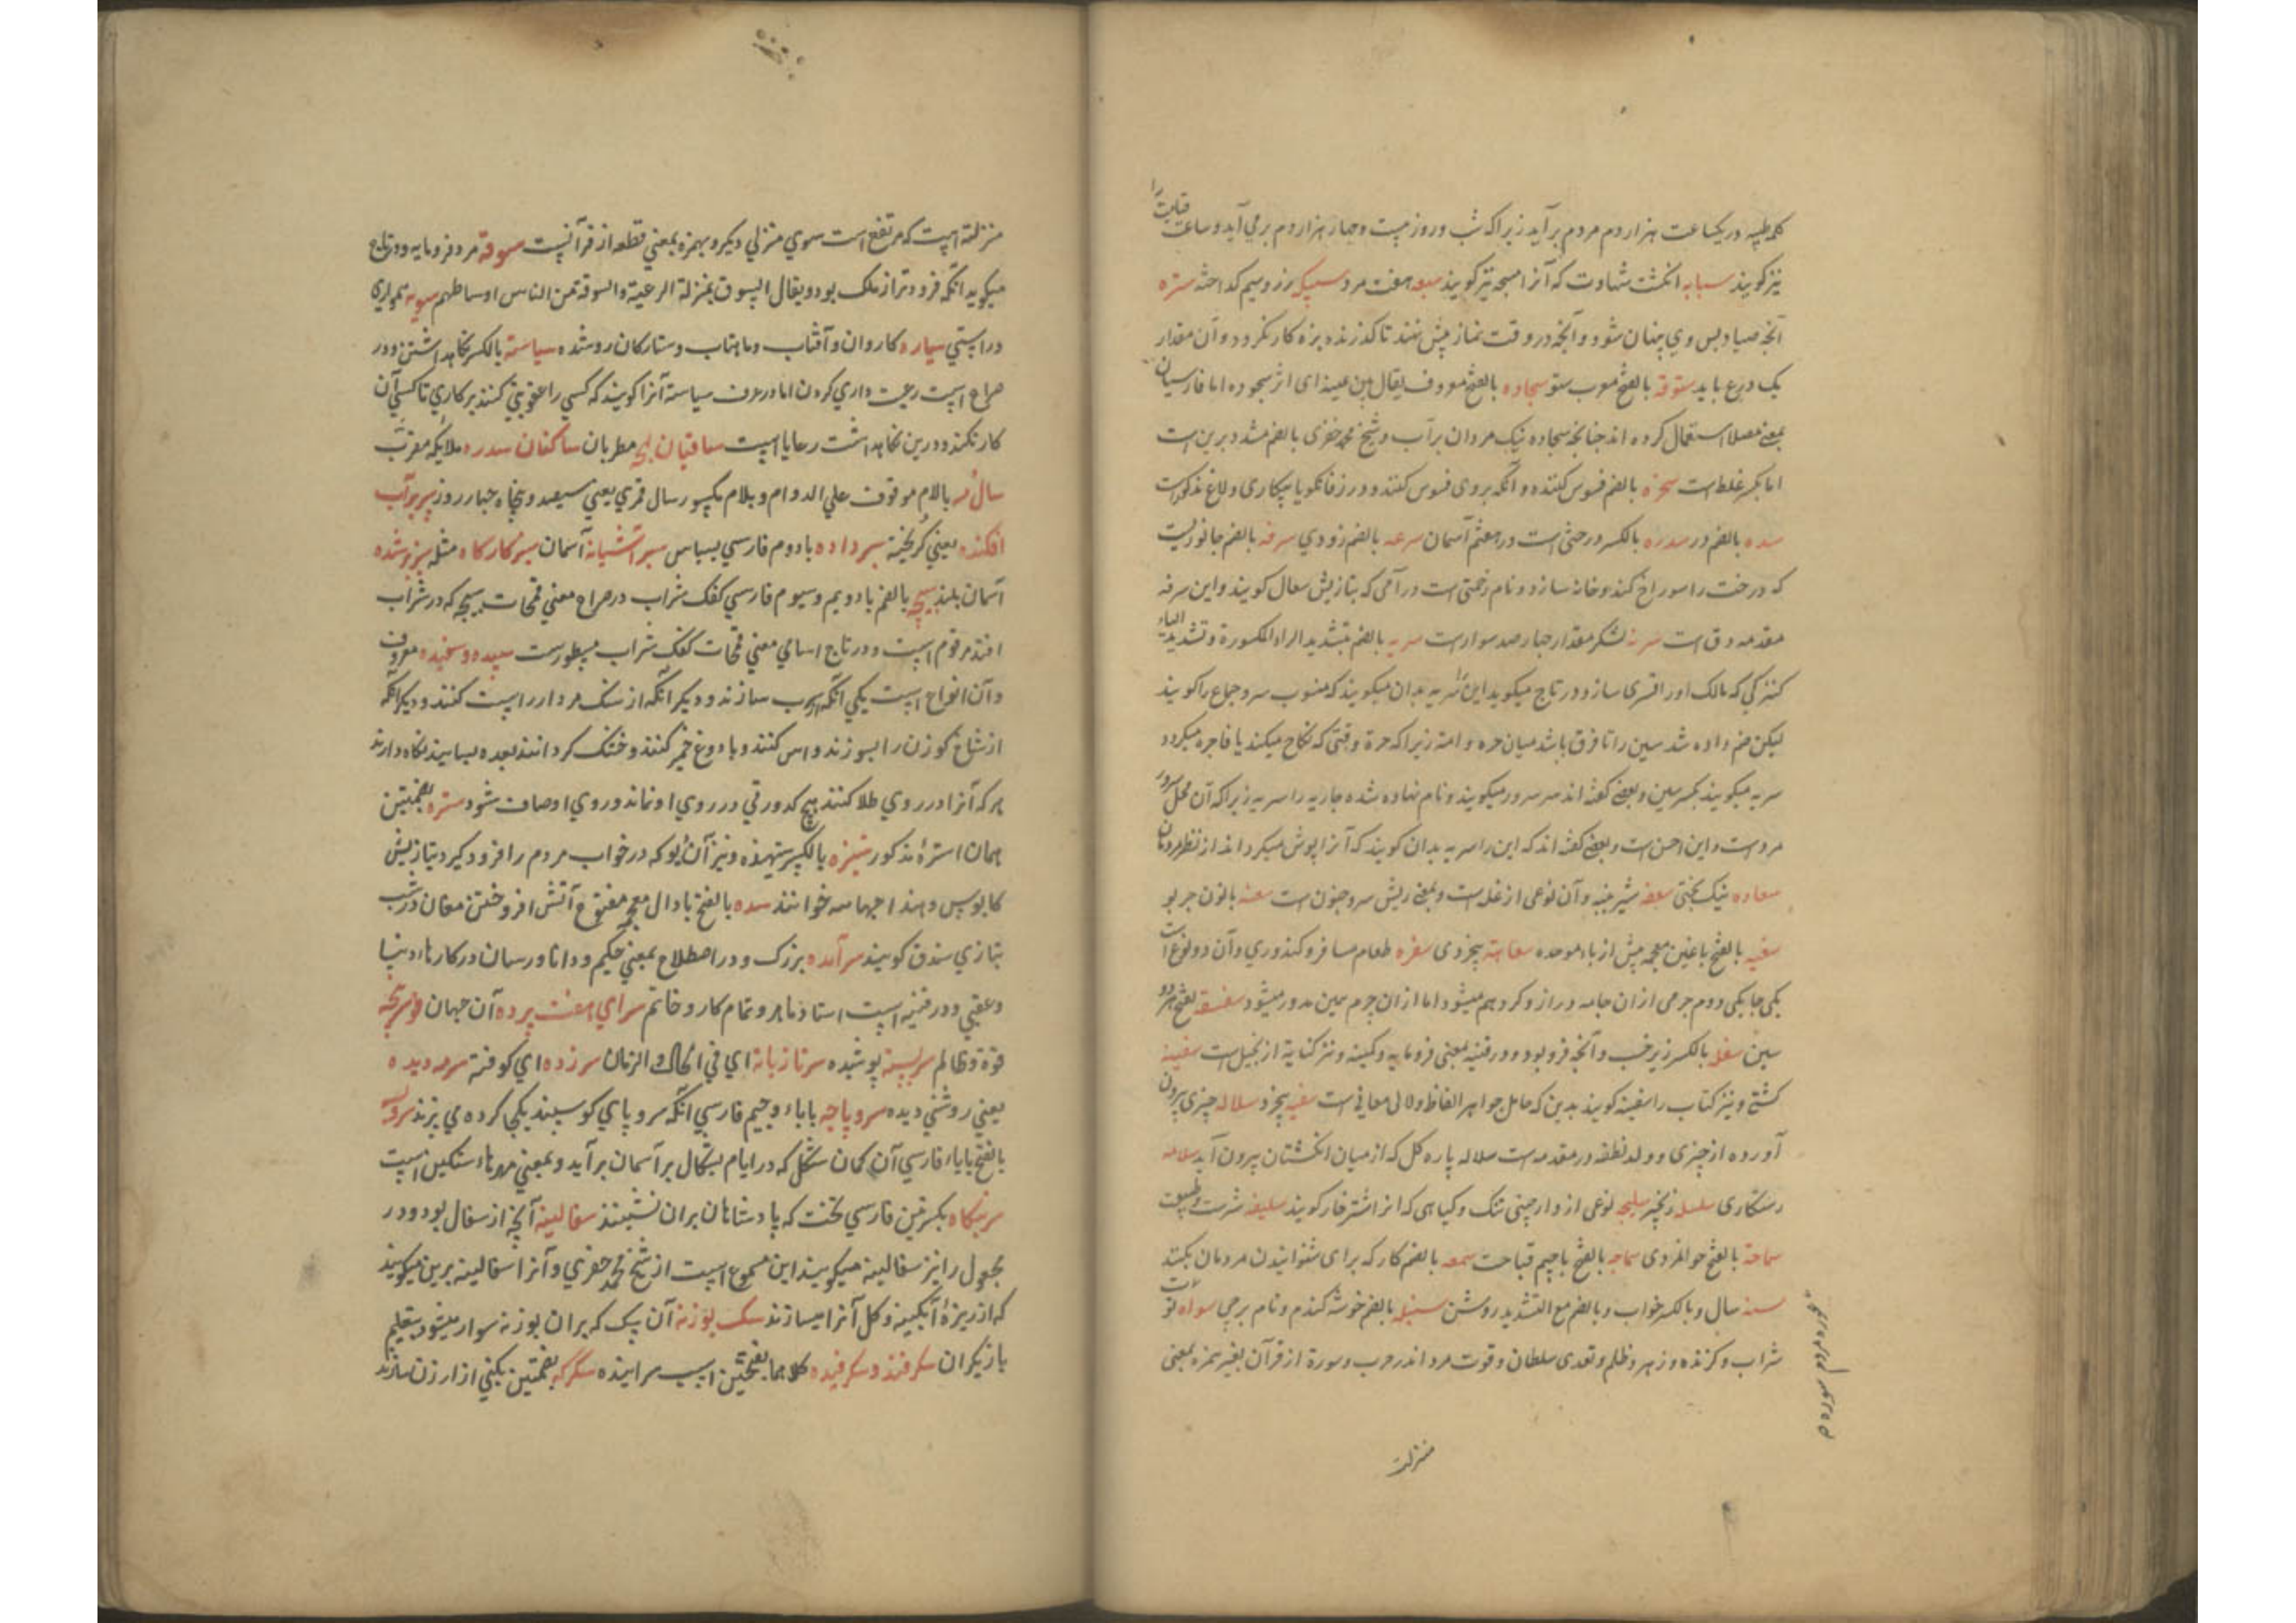 کلمه طیبه در یکساعت هزار دم مردم برآید زیراکه شب و روز بیست و چهار هزار دم برمی آید و ساعت قیامت را
نیز کویند سبابه انکشت شهادت که آنرا مسبحه نیز کویند سبعه هفت مرد سبیکه زر و سیم کداخته ستره
آنچه صیاد پس وی پنهان شود و آنچه در وقت نماز پیش نهند تا کذرنده بزه کار نکردد و آن مقدار
یک درع باید ستوقه بالفتح معرب ستو سجاده بالفتح معروف یقال بین عینیه ای اثر سجوده اما فارسیان
بمعنی مصلا استعمال کرده اند چنانچه سجاده نیک مردان بر آب و شیخ محمد خضری بالضم مشدد برین است
اما بکسر غلط است سخره بالضم فسوس کننده و آنکه بروی فسوس کنند و در زفانکویا بیکاری و لاغ مذکورست
سده بالضم در سدره بالکسر درختی است در هفتم آسمان سرعه بالضم زودی سرفه بالضم جانوریست
که درخت را سوراخ کند و خانه سازد و نام زحمتی است در آدمی که بتازیش سعال کویند و این سرفه
مقدمه دق است سریه لشکر مقدار چهار صد سوارست سریه بالضم بتشدید الراء المکسورة و تشدید الیاء
کنیزکی که مالک اورا سری سازد و در تاج میکوید این را سریه بدان میکویند که منسوب سر و جماع را کویند
لیکن ضم داده شد سین را تا فرق باشد میان حره و امة زیراکه حرة وقتی که نکاح میکند یا فاجره میکردد
سریه میکویند بکسر سین و بعضی کفته اند سر سرور میکویند و نام نهاده شده جاریه را سریه زیراکه آن محل سرور
مردست و این احسن است و بعضی کفته اند که این را سریه بدان کویند که آنرا پوش میکرداند از نظر مردمان
سعاده نیک بختی سعفه شیرینه و آن نوعی از غله است و بمعنی ریش سر و جنون است
سغبه بالفتح با غین معجمه پیش از باء موحده سفاهة بیخردی سفره طعام مسافر و کندوری و آن دو نوع است
یکی جامکی و دوم چرمی از آن جامه دراز و کرد هم میشود اما از آن چرم همین مدور میشود بفتح هر دو
سین سفله بالکسر زیر خسب و آنچه فرو بود و در قنیه بمعنی فرومایه و کمینه و نیز کنایة از بخیل است سفینه
کشتی و نیز کتاب را سفینه کویند بدین که حامل جواهر الفاظ و لالی معانی است سفیه بیخرد سلاله چیزی بیرون
آورده از چیزی و ولد نطفه در مقدمه است سلاله پاره کل که از میان انکشتان بیرون آید سلامه
رستکاری سلسله زنجیر سلیخه نوعی از دارچینی تنک و کیاهی که آنرا اشترخار کویند سلیقه سرشت و طبیعت
سماحة بالفتح جوانمردی سماجه بالفتح با جیم قباحت سمعه بالضم کار که برای شنوانیدن مردمان بکنند
سنه سال و بالکسر خواب و بالضم مع التشدید روشن سنبله بالضم خوشه کندم و نام برجی
شراب و کزنده و زهر و ظلم و تعدی سلطان و قوت مرد اندر حرب و سورة از قرآن بغیر همزه بمعنی
منزلت
منزلة است که مرتفع است سوی منزلی دیکر و بهمزه بمعنی قطعه از قرآنست سوقة مرد فرومایه و در تاج
میکوید آنکه فروتر از ملک بود و یقال السوق بمنزلة الرعیة و السوقة من الناس اوساطهم سویه همواری
و راستی سیاره کاروان و آفتاب و ماهتاب و ستارکان روشنده سیاسة بالکسر نکاهداشتن و در
صراح است رعیت داری کردن اما در عرف سیاسة آنرا کویند که کسی را عقوبتی کنند بر کاری تا کسی آن
کار نکند و درین نکاهداشت رعایا است ساقیان لجه مطربان ساکنان سدره ملائکه مقرب
سال مه بالام موقوف علی الدوام و بلام مکسور سال قمری یعنی سیصد و پنجاه چهار روز سپر بر آب
افکنده یعنی کریخته سپر داده با دوم فارسی سپاس سبز آشیانه آسمان سبز کارکاه مثله
آسمان بلند سیجه بالضم با دویم و سیوم فارسی کفک شراب در صراح معنی قمحات سیجه که در شراب
افتد مرقوم است و در تاج اسامی معنی قمحات کفک شراب مسطورست سپیده و سفیده معروف
و آن انواع است یکی آنکه از سرب سازند و دیکر آنکه از سنک مردار راست کنند و دیکر آنکه
از شاخ کوزن را بسوزند و آس کنند و با دوغ خمیر کنند و خشک کردانند بعده بسایند نکاه دارند
هرکه آنرا در روی طلا کنند هیچ کدورتی در روی او نماند و روی او صاف شود ستره بضمتین
همان استره مذکور ستیزه بالکسر ستیهنده و نیز آن بود که در خواب مردم را فرود کیرد بتازیش
کابوس و خوانند سده بالفتح با دال معجمه مفتوح آتش افروختن مغان در شب
بتازی سذق کویند سرآمده بزرک و در اصطلاح بمعنی حکیم و دانا و رسمان در کارهای دنیا
و عقبی و در قنیه است استاد ماهر و تمام کار و خاتم سرای هفت پرده آن جهان
قوة و ظالم سربسته پوشیده سر تازیانه ای فی الحال و الزمان سرزده ای کوفته سرمه دیده
یعنی روشنی دیده سر و پاچه با باء و جیم فارسی آنکه سر و پای کوسپند یکجا کرده می پزند
بالفتح با یاء فارسی آن کمان شکل که در ایام بشکال بر آسمان برآید و بمعنی مهرهاء سنکین است
سرینکاه بکسرتین فارسی تخت که پادشاهان بران نشینند سفالینه آنچه از سفال بود و در
مجهول را نیز سفالینه میکویند این مسموع است از شیخ محمد خضری و آنرا سفالینه برین میکویند
که از ریزه آبکینه و کل آنرا میسازند سک بوزنه آن سک که بران بوزنه سوار میشود بتعلیم
بازیکران سکرفنده و سکرفیده کلاهما بفتحتین اسب سراینده سکرکه بضمتین بکنی از ارزن سازند